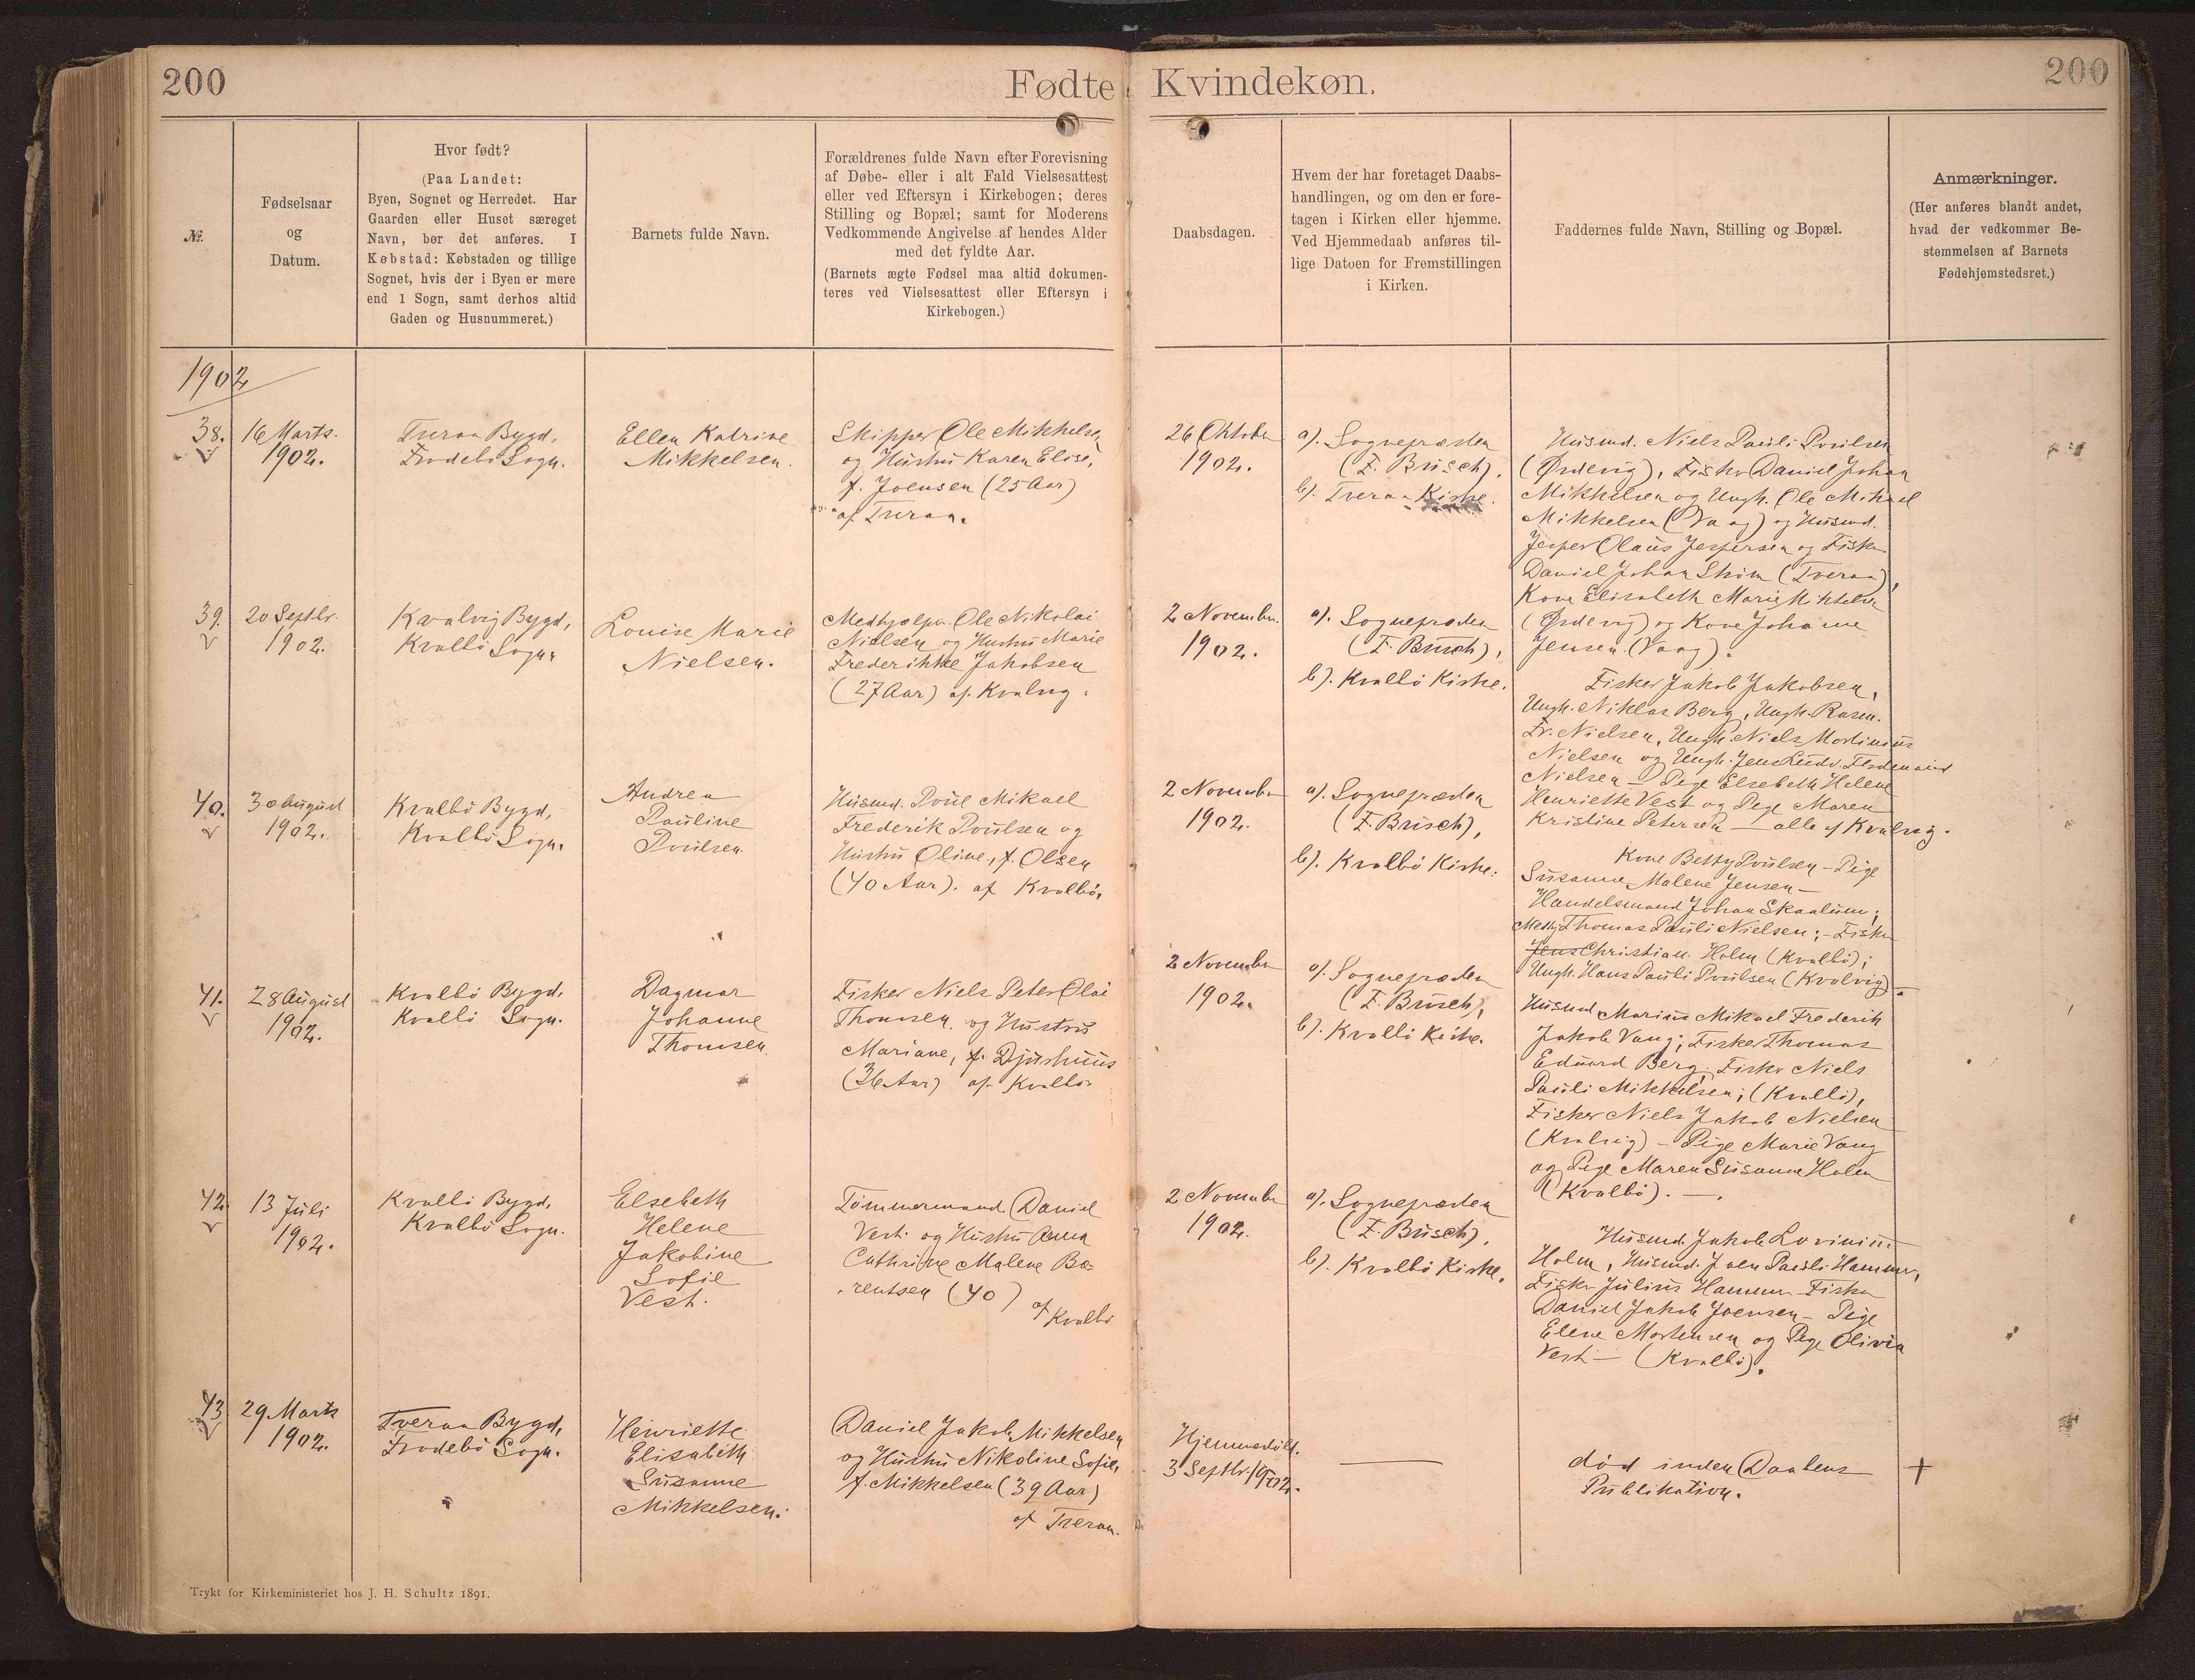 200
Fødte
Kvindekøn.
200
№.
Fødselsaar
og
Datum.
Hvor født?
(Paa Landet:
Byen, Sognet og Herredet. Har
Gaarden eller Huset særeget
Navn, bør det anføres. I
Købstad: Købstaden og tillige
Sognet, hvis der i Byen er mere
end 1 Sogn, samt derhos altid
Gaden og Husnummeret.)
Barnets fulde Navn.
Forældrenes fulde Navn efter Forevisning
af Døbe- eller i alt Fald Vielsesattest
eller ved Eftersyn i Kirkebogen; deres
Stilling og Bopæl; samt for Moderens
Vedkommende Angivelse af hendes Alder
med det fyldte Aar.
(Barnets ægte Fødsel maa altid dokumen-
teres ved Vielsesattest eller Eftersyn i
Kirkebogen.)
Daabsdagen.
Hvem der har foretaget Daabs-
handlingen, og om den er fore-
tagen i Kirken eller hjemme.
Ved Hjemmedaab anføres til-
lige Datoen for Fremstillingen
i Kirken.
Faddernes fulde Navn, Stilling og Bopæl.
Anmærkninger.
(Her anføres blandt andet,
hvad der vedkommer Be-
stemmelsen af Barnets
Fødehjemstedsret.)
1902
38.
16 Marts.
1902.
Tveraa Bygd,
Frodebö Sogn.
Ellen Katrine
Mikkelsen.
Skipper Ole Mikkelsen
og Hustru Karen Elise,
f. Joensen (25 Aar)
af Tveraa.
26 Oktober
1902.
a). Sognepræsten
(F. Brüsch),
b). Tveraa Kirke.
Husmd. Niels Pauli Poulsen
(Ørdevig), Fisker Daniel Johan
Mikkelsen og Ungk. Ole Mikael
Mikkelsen (Vaag) og Husmd.
Jesper Olaus Jespersen og Fisker
Daniel Johan Ström (Tveraa),
Kone Elisabeth Marie Mikkelsen
(Ørdevig) og Kone Johanne
Jensen (Vaag).
39.
20 Septbr.
1902.
Kvalvig Bygd,
Kvalbö Sogn.
Louise Marie
Nielsen.
Medhjælper Ole Nikolai
Nielsen og Hustru Marie
Frederikke Jakobsen
(27 Aar) af Kvalvig.
2 November
1902.
a). Sognepræsten
(F. Brüsch),
b). Kvalbö Kirke.
Fisker Jakob Jakobsen,
Ungk. Niklas Berg, Ungk. Rasm.
Fr. Nielsen, Ungk. Niels Mortinius
Nielsen og Ungk. Jens Ludv. Ferdinand
Nielsen - Pige Elsebeth Helene
Henriette Vest og Pige Maren
Kristine Petersen - alle af Kvalvig.
40.
30 August
1902.
Kvalbö Bygd,
Kvalbö Sogn.
Andrea
Pauline
Poulsen.
Husmd. Poul Mikael
Frederik Poulsen og
Hustru Oline, f. Olsen
(40 Aar). af Kvalbö.
2 November
1902.
a). Sognepræsten
(F. Brüsch),
b). Kvalbö Kirke.
Kone Betty Poulsen - Pige
Susanne Malene Jensen -
Handelsmand Johan Skaalum;
Medhj Thomas Pauli Nielsen; - Fisker
Jens Christian Holm (Kvalbö);
Ungk. Hans Pauli Poulsen (Kvalvig) -
41.
28 August
1902.
Kvalbö Bygd,
Kvalbö Sogn.
Dagmar
Johanne
Thomsen.
Fisker Niels Peter Olai
Thomsen og Hustru
Mariane, f. Djurhuus
(36 Aar) af Kvalbö.
2 November
1902.
a). Sognepræsten
(F. Brüsch),
b). Kvalbö Kirke.
Husmd. Marius Mikael Frederik
Jakob Vang; Fisker Thomas
Eduard Berg; Fisker Niels
Pauli Mikkelsen; (Kvalbö),
Fisker Niels Jakob Nielsen
(Kvalvig) - Pige Marie Vang
og Pige Maren Susanne Holm
(Kvalbö). -.
42.
13 Juli
1902.
Kvalbö Bygd,
Kvalbö Sogn.
Elsebeth
Helene
Jakobine
Sofie
Vest.
Tømmermand Daniel
Vest og Hustru Anna
Cathrine Malene Bæ-
rentsen (40)
af Kvalbö
2 November
1902.
a). Sognepræsten
(F. Brüsch),
b). Kvalbö Kirke.
Husmd. Jakob
Holm, Husmd. Joen Pauli Hammer,
Fisker Julius Hammer - Fisker
Daniel Jakob Joensen - Pige
Elene Mortensen og Pige Olivia
Vest - (Kvalbö).
43
29 Marts
1902.
Tveraa Bygd,
Frodebö Sogn.
Henriette
Elisabeth
Susanne
Mikkelsen.
Daniel Jakob Mikkelsen
og Hustru Nikoline Sofie,
f. Mikkelsen (39 Aar)
af Tveraa.
Hjemmedöbt.
3 Septbr. 1902.
död inden Daabens
Publikation.
+
Trykt for Kirkeministeriet hos J. H. Schultz 1891.